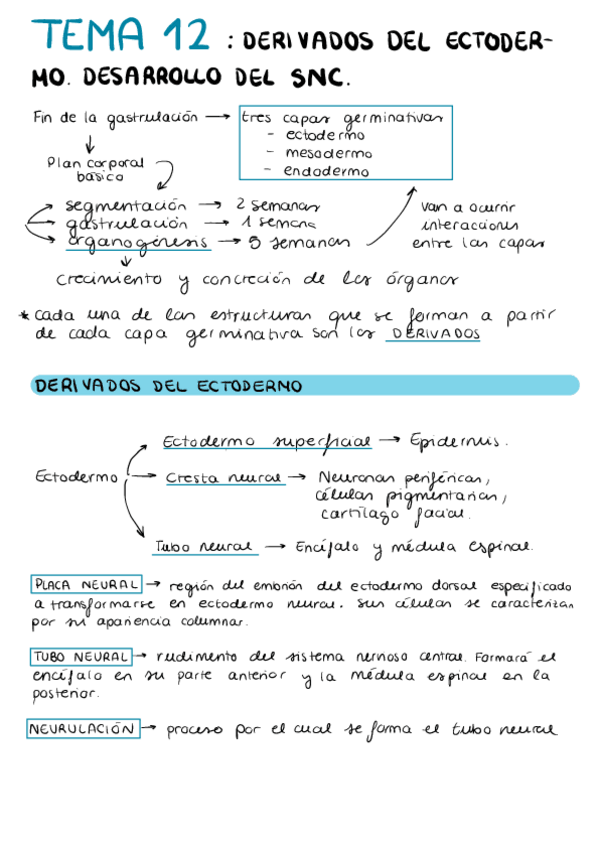 TEMA 12 : DERIVADOS DEL ECTODER-
MO. DESARROLLO DEL SNC.
Fin de la gastrulación → tres capas germinativas
- ectodermo
- mesodermo
- endodermo
Plan corporal
básico
segmentación → 2 semanas
gastrulación → 1 semana
organogénesis → 5 semanas
van a ocurrir
interacciones
entre las capas
crecimiento y concreción de los órganos
* cada una de las estructuras que se forman a partir
de cada capa germinativa son los DERIVADOS
DERIVADOS DEL ECTODERMO
Ectodermo superficial → Epidermis.
Ectodermo → Cresta neural → Neuronas periféricas,
células pigmentarias,
cartílago facial.
Tubo neural → Encéfalo y médula espinal.
PLACA NEURAL → región del embrión del ectodermo dorsal especificado
a transformarse en ectodermo neural. Sus células se caracterizan
por su apariencia columnar.
TUBO NEURAL → rudimento del sistema nervioso central. Formará el
encéfalo en su parte anterior y la médula espinal en la
posterior.
NEURULACIÓN → proceso por el cual se forma el tubo neural